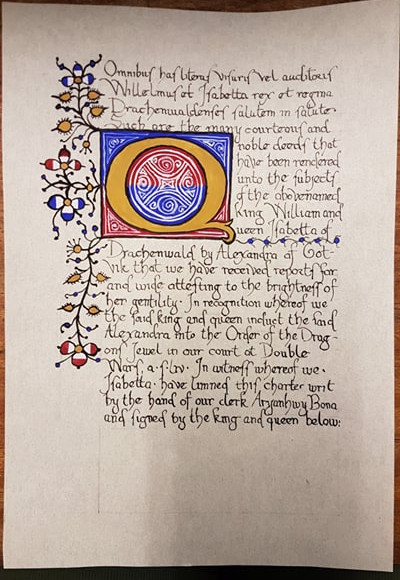 Omnibus has literas visuris vel auditoris
Willelmus et Isabetta rex et regina
Drachenwaldenses salutem in salute.
Such are the many courteous and
noble deeds that
have been rendered
unto the subjects
of the abovenamed
king William and
Queen Isabetta of
Drachenwald by Alexandra of Got-
vik that we have received reports far
and wide attesting to the brightness of
her gentility. In recognition whereof we
the said king and queen induct the said
Alexandra into the Order of the Drag-
ons Jewel in our court at Double
Wars, a.s. liv. In witness whereof we.
Isabetta. have limned this charter writ
by the hand of our clerk Aryanhwy Bona
and signed by the king and queen below: